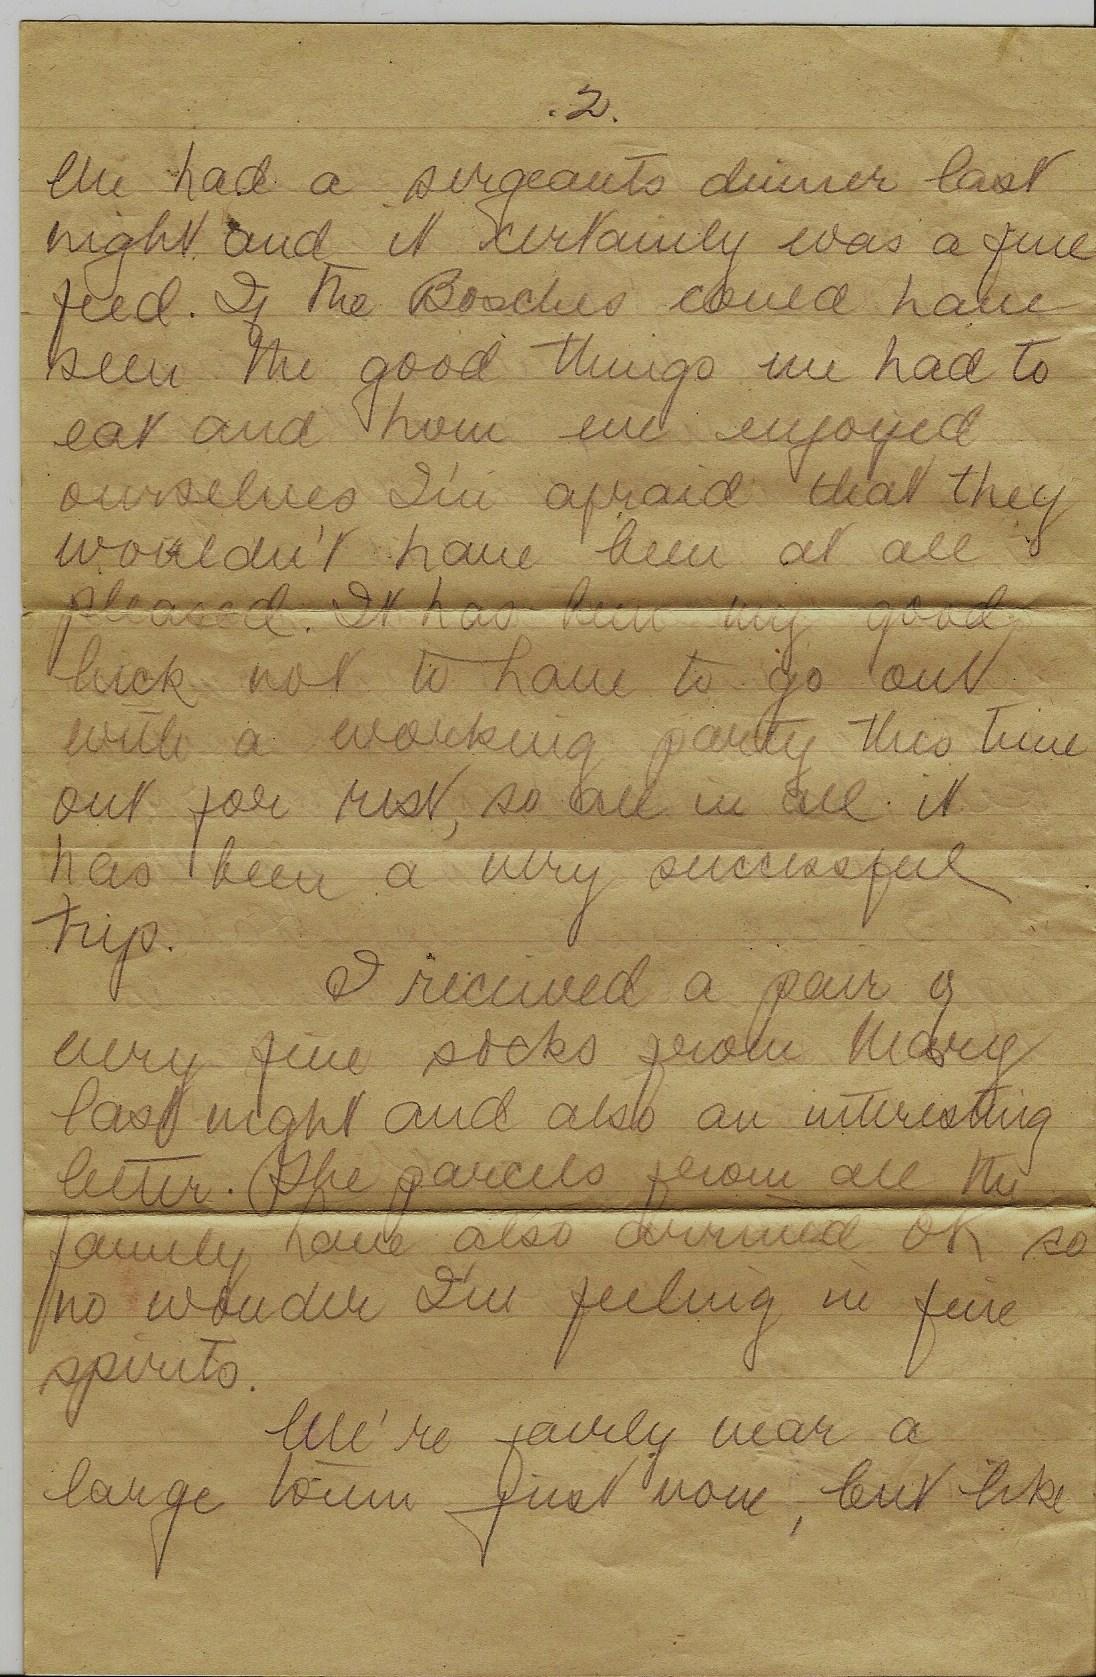 .2.
We had a sergeants dinner last
night and it certainly was a fine
feed. If the Bosches could have
seen the good things we had to
eat and how we enjoyed
ourselves I'm afraid that they
wouldn't have been at all
pleased. It has been my good
luck not to have to go out
with a working party this time
out for rest, so all in all it
has been a very successful
trip.
I received a pair of
very fine socks from Mary
last night and also an interesting
letter. The parcels from all the
family have also arrived OK so
no wonder I'm feeling in fine
spirits.
We're fairly near a
large town just now, but like